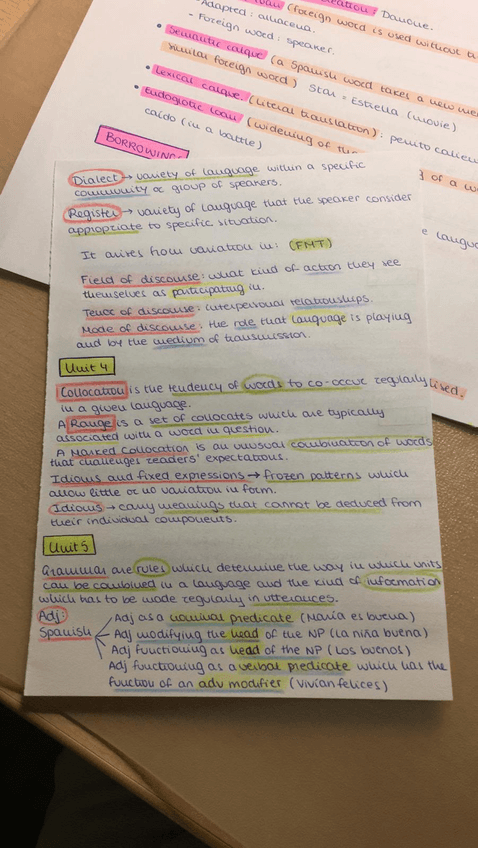 (foreign word is used without t
Dancne.
- Adapted:
- Foreign word: speaker.
• Semantic calque (a Spanish word takes a new me
similar foreign word) Star = Estrella (movie)
• Lexical calque. (literal translation): perrito calien
• Endoglotic loan (widening of the
caído (in a battle)
BORROWING
of a w
e langua
ised.
Dialect → variety of language within a specific
community or group of speakers.
Register → variety of language that the speaker consider
appropriate to specific situation.
It arises from variation in: (FMT)
Field of discourse: what kind of action they see
themselves as participating in.
Tenor of discourse: interpersonal relationships.
Mode of discourse: the role that language is playing
and by the medium of transmission.
Unit 4
Collocation is the tendency of words to co-occur regularly
in a given language.
A Range is a set of collocates which are typically
associated with a word in question.
A Marked Collocation is an unusual combination of words
that challenges readers' expectations.
Idioms and fixed expressions → frozen patterns which
allow little or no variation in form.
Idioms → carry meanings that cannot be deduced from
their individual components.
Unit 5
Grammar are rules which determine the way in which units
can be combined in a language and the kind of information
which has to be made regularly in utterances.
Adj: Adj as a nominal predicate (María es buena)
Spanish Adj modifying the head of the NP (La niña buena)
Adj functioning as head of the NP (Los buenos)
Adj functioning as a verbal predicate which has the
function of an adv modifier (Vivían felices)